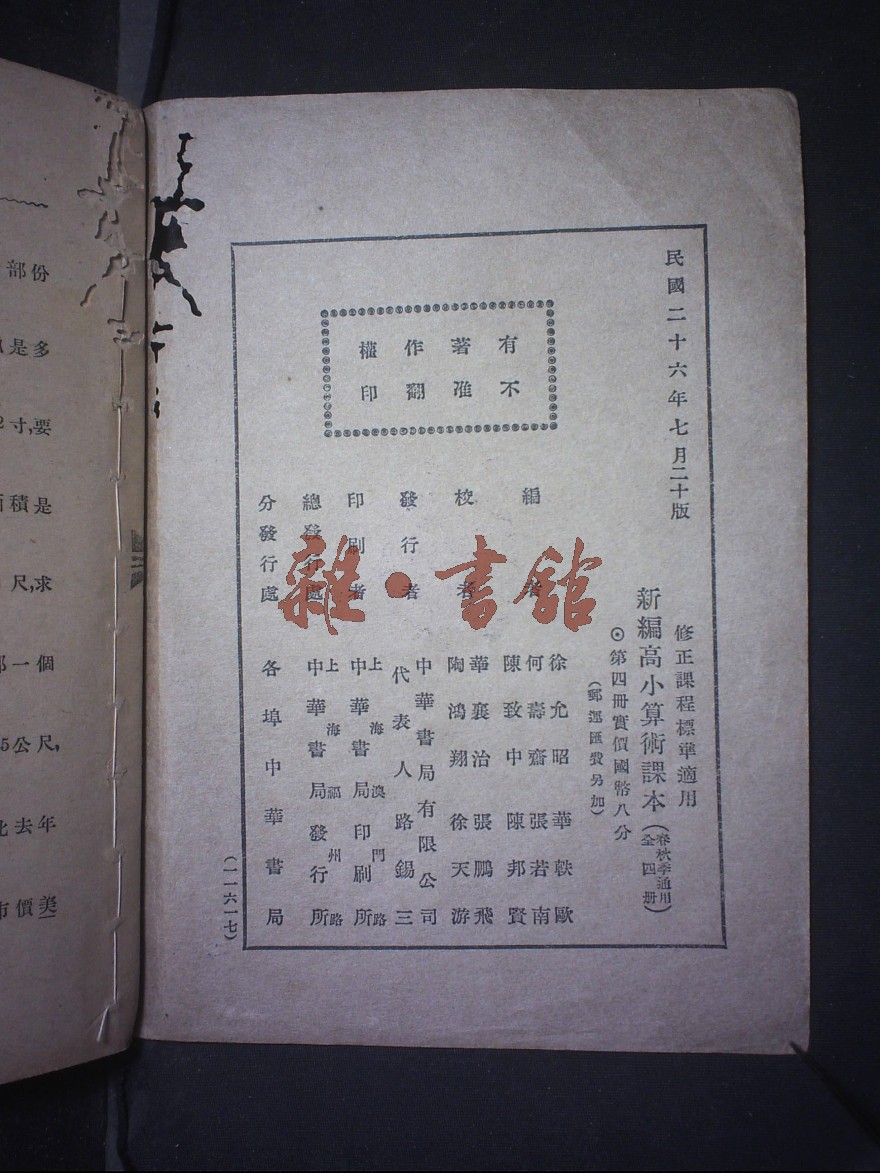 民國二十六年七月二十版
修正課程標準適用
新編高小算術課本(春秋季通用 全四冊)
⊙第四冊實價國幣八分
(郵運匯費另加)
有著作權
不准翻印
編者
徐允昭 華軼歐
何壽齋 張若南
陳致中 陳邦賢
校者
華襄治 張鵬飛
陶鴻翔 徐天游
發行者
中華書局有限公司
代表人 路錫三
印刷者
上海澳門路
中華書局印刷所
總發行處
上海福州路
中華書局發行所
分發行處
各埠中華書局
(一一六一七)
雜·書館
部份
是多
寸,要
積是
尺,求
一個
5公尺,
去年
市價美